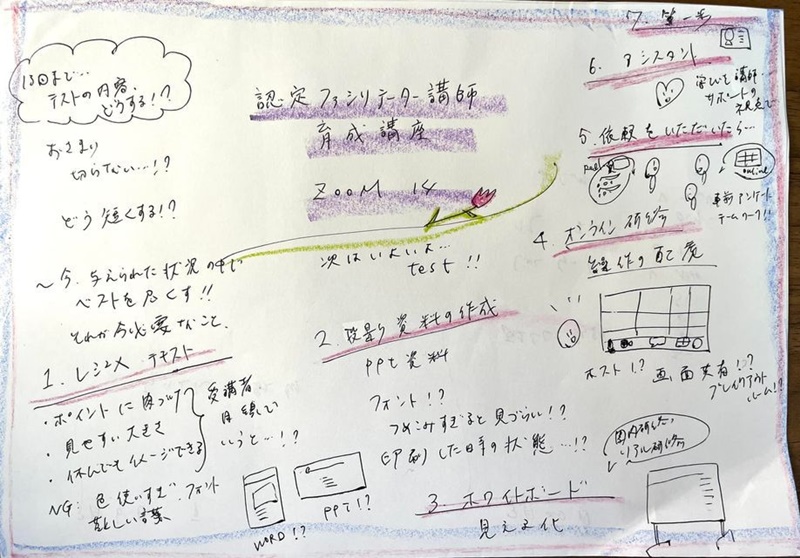 認定ファシリテーター講師
育成講座
ZOOM 14
次はいよいよ…
test!!
13回まで…
テストの内容、
どうする!?
おさまり
切らない…!?
どう短くする!?
~今、与えられた状況の中で
ベストを尽くす!!
それが今必要なこと、
1. レジュメ テキスト
・ポイントに
・見やすい大きさ
・休んでもイメージできる
受講者
目線で
いうと…!?
NG: 色使いすぎ、フォント
難しい言葉
WORD!?
PPT!?
2. 投影資料の作成
PPT資料
フォント!?
つめこみすぎると見づらい!?
印刷した時の状態…!?
3. ホワイトボード
見える化
国内研修、
リアル研修
4. オンライン研修
操作の配慮
ホスト!?
画面共有!?
ブレイクアウト
ルーム!?
5. 依頼をいただいたら…
online
事前アンケート
チームワーク!!
6. アシスタント
学びを講師・
サポートの
視点で
7. 第一歩